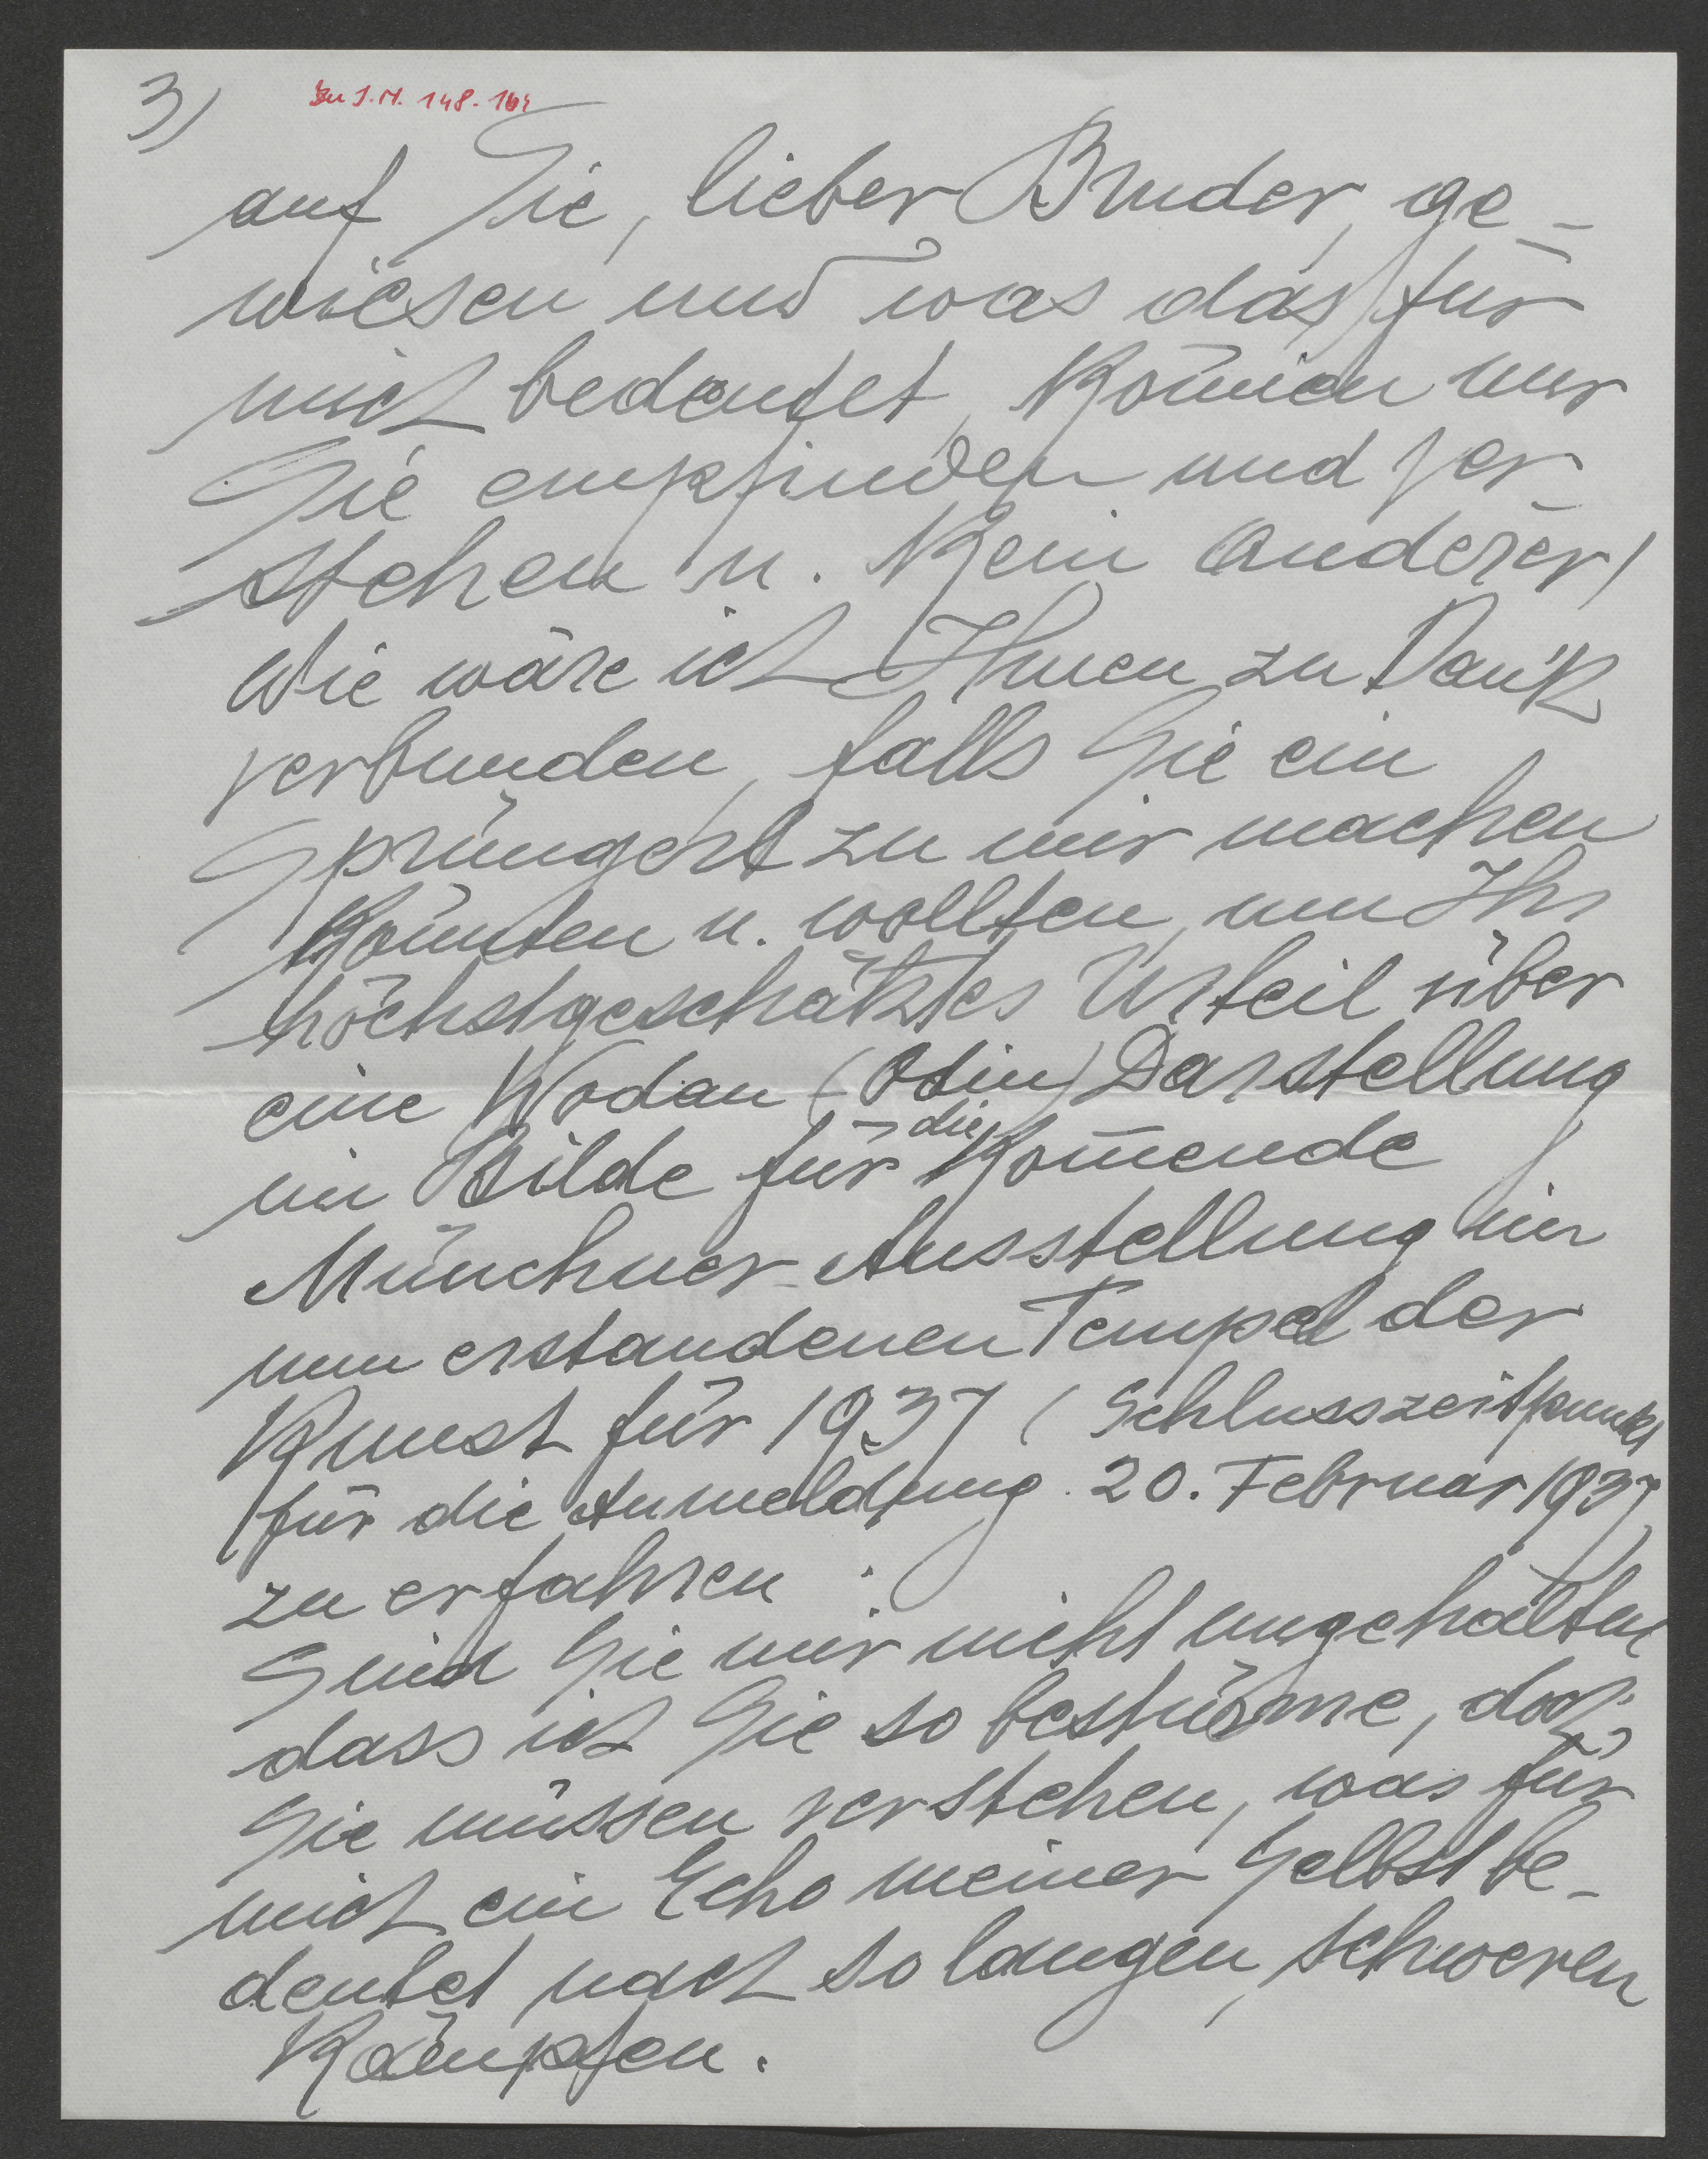 3)
Zu I.N. 148.164
auf Sie, lieber Bruder, ge=
wiesen und was das für
mich bedeutet, können nur
Sie empfinden und ver-
stehen u. kein anderer!
Wie wäre ich Ihnen zu Dank
verbunden, falls Sie ein
Sprüngerl zu mir machen
könnten u. wollten, um Ihr
höchstgeschätztes Urteil über
eine Wodan (Odin) Darstellung
im Bilde für die kom̅ende
Münchner-Ausstellung im
nun erstandenen Tempel der
Kunst für 1937 (Schlusszeitpunkt
für die Anmeldung. 20. Februar 1937)
zu erfahren
Seien Sie mir nicht ungehalten
dass ich Sie so bestürme, doch
Sie müssen verstehen, was für
mich ein Echo meiner Selbst be-
deutet nach so langen, schweren
Kämpfen.